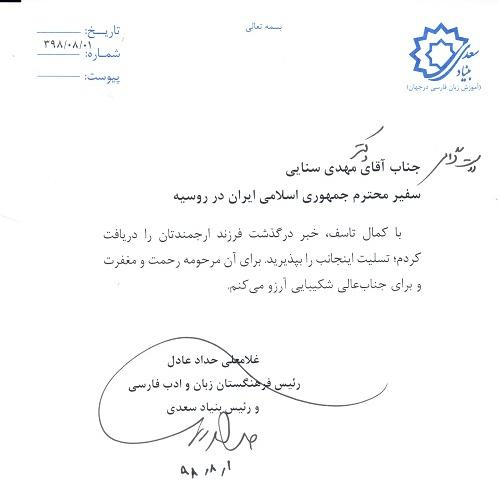 بسمه تعالی
بنیاد سعدی
(آموزش زبان فارسی در جهان)
تاریخ:
۳۹۸/۰۸/۰۱
شماره:
پیوست:
دکتر
جناب آقای مهدی سنایی
سفیر محترم جمهوری اسلامی ایران در روسیه
با کمال تاسف، خبر درگذشت فرزند ارجمندتان را دریافت
کردم؛ تسلیت اینجانب را بپذیرید. برای آن مرحومه رحمت و مغفرت
و برای جناب‌عالی شکیبایی آرزو می‌کنم.
غلامعلی حداد عادل
رئیس فرهنگستان زبان و ادب فارسی
و رئیس بنیاد سعدی
۹۸/۸/۱